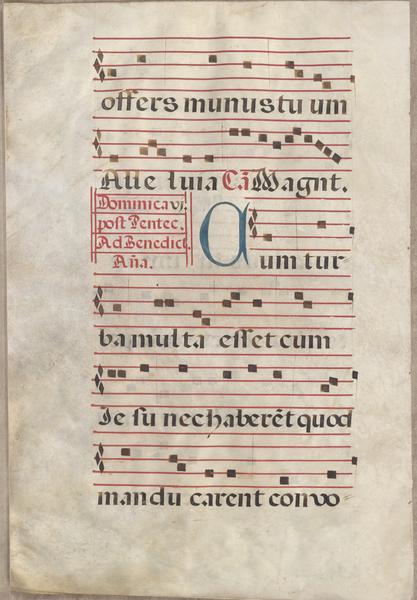 offers munus tu um
Alle luia Cā Magnt.
Dominica vj.
post Pentec.
Ad Benedict.
Aña.
Cum tur
ba multa esset cum
Ie su nec haberēt quod
mandu carent convo